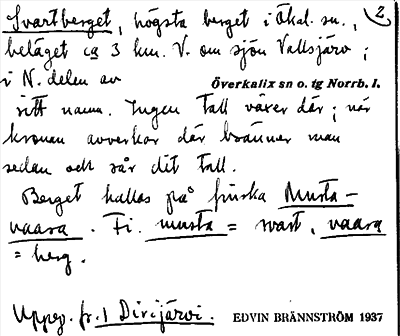 Svartberget, högsta berget i Ökal. sn., 2
beläget ca 3 km. V. om sjön Vallsjärv ;
i N. delen av
Överkalix sn o. tg Norrb. l.
sitt namn. Ingen tall växer där ; när
kronan avverkar där bränner man
sedan och sår dit tall.
Berget kallas på finska Musta-
vaara. Fi. musta = svart, vaara
= berg.
Uppg. fr. 1 Dirijärvi. EDVIN BRÄNNSTRÖM 1937